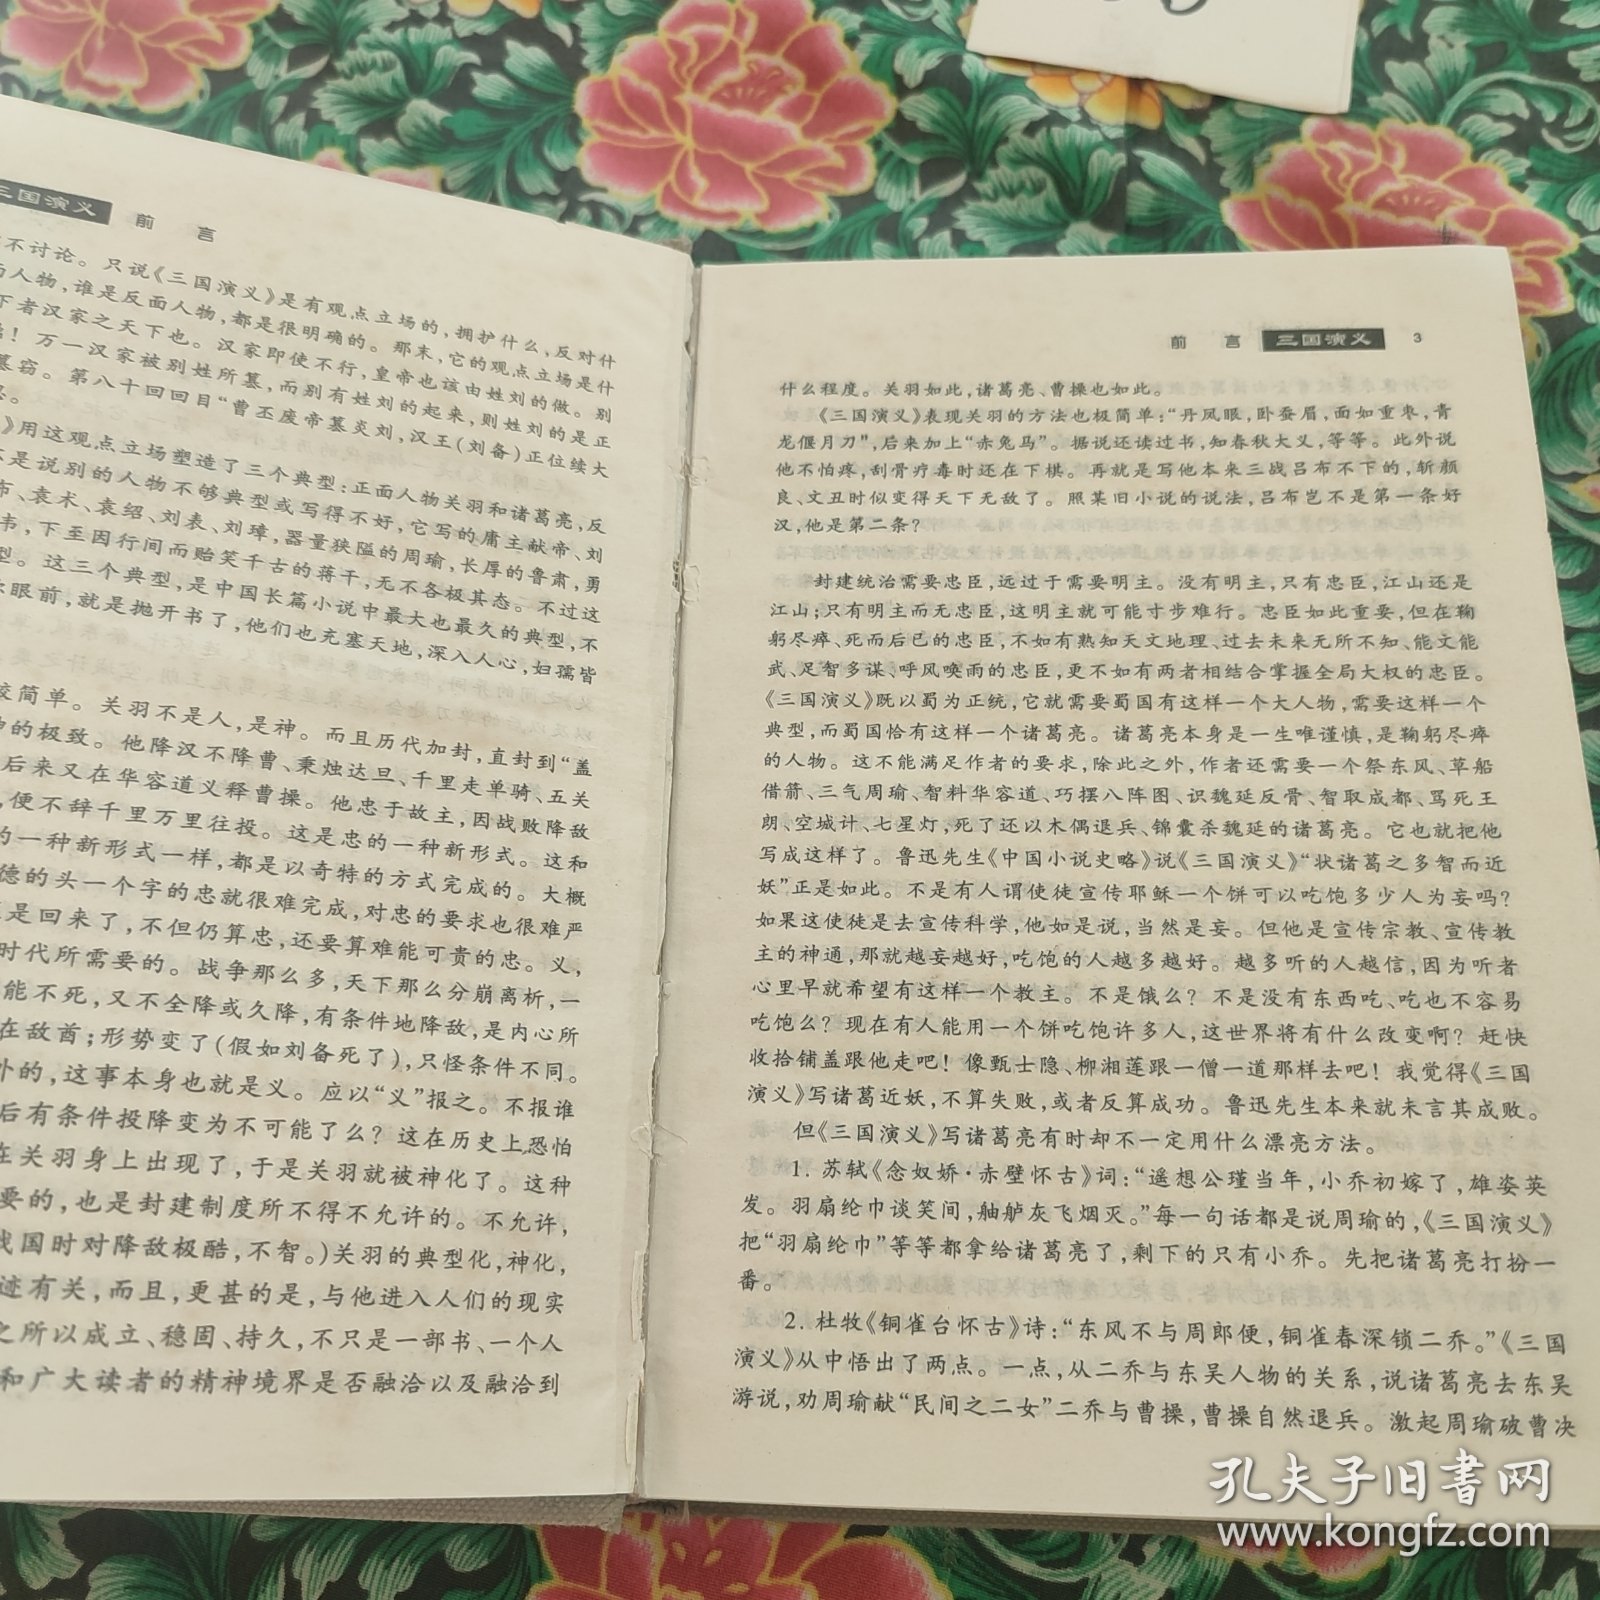 三国演义 前 言
不讨论。只说《三国演义》是有观点立场的,拥护什么,反对什
面人物,谁是反面人物,都是很明确的。那末,它的观点立场是什
下者汉家之天下也。汉家即使不行,皇帝也该由姓刘的做。别
！万一汉家被别姓所篡,而别有姓刘的起来,则姓刘的是正
篡窃。第八十回回目“曹丕废帝篡炎刘,汉王(刘备)正位续大
》用这观点立场塑造了三个典型:正面人物关羽和诸葛亮,反
是说别的人物不够典型或写得不好,它写的庸主献帝、刘
布、袁术、袁绍、刘表、刘璋,器量狭隘的周瑜,长厚的鲁肃,勇
韦,下至因行间而贻笑千古的蒋干,无不各极其态。不过这
型。这三个典型,是中国长篇小说中最大也最久的典型,不
眼前,就是抛开书了,他们也充塞天地,深入人心,妇孺皆
较简单。关羽不是人,是神。而且历代加封,直封到“盖
神的极致。他降汉不降曹、秉烛达旦、千里走单骑、五关
后来又在华容道义释曹操。他忠于故主,因战败降敌
,便不辞千里万里往投。这是忠的一种新形式。这和
的一种新形式一样,都是以奇特的方式完成的。大概
德的头一个字的忠就很难完成,对忠的要求也很难严
是回来了,不但仍算忠,还要算难能可贵的忠。义,
时代所需要的。战争那么多,天下那么分崩离析,一
能不死,又不全降或久降,有条件地降敌,是内心所
在敌酋;形势变了(假如刘备死了),只怪条件不同。
外的,这事本身也就是义。应以“义”报之。不报谁
后有条件投降变为不可能了么?这在历史上,恐怕
在关羽身上出现了,于是关羽就被神化了。这种
要的,也是封建制度所不得不允许的。不允许,
战国时对降敌极酷,不智。)关羽的典型化,神化,
迹有关,而且,更甚的是,与他进入人们的现实
之所以成立、稳固、持久,不只是一部书、一个人
和广大读者的精神境界是否融洽以及融洽到
前 言 三国演义 3
什么程度。关羽如此,诸葛亮、曹操也如此。
《三国演义》表现关羽的方法也极简单:“丹凤眼,卧蚕眉,面如重枣,青
龙偃月刀”,后来加上“赤兔马”。据说还读过书,知春秋大义,等等。此外说
他不怕疼,刮骨疗毒时还在下棋。再就是写他本来三战吕布不下的,斩颜
良、文丑时似变得天下无敌了。照某旧小说的说法,吕布岂不是第一条好
汉,他是第二条?
封建统治需要忠臣,远过于需要明主。没有明主,只有忠臣,江山还是
江山;只有明主而无忠臣,这明主就可能寸步难行。忠臣如此重要,但在鞠
躬尽瘁、死而后已的忠臣,不如有熟知天文地理、过去未来无所不知、能文能
武、足智多谋、呼风唤雨的忠臣,更不如有两者相结合掌握全局大权的忠臣。
《三国演义》既以蜀为正统,它就需要蜀国有这样一个大人物,需要这样一个
典型,而蜀国恰有这样一个诸葛亮。诸葛亮本身是一生唯谨慎,是鞠躬尽瘁
的人物。这不能满足作者的要求,除此之外,作者还需要一个祭东风、草船
借箭、三气周瑜、智料华容道、巧摆八阵图、识魏延反骨、智取成都、骂死王
朗、空城计、七星灯,死了还以木偶退兵、锦囊杀魏延的诸葛亮。它也就把他
写成这样了。鲁迅先生《中国小说史略》说《三国演义》“状诸葛之多智而近
妖”正是如此。不是有人谓使徒宣传耶稣一个饼可以吃饱多少人为妄吗?
如果这使徒是去宣传科学,他如是说,当然是妄。但他是宣传宗教、宣传教
主的神通,那就越妄越好,吃饱的人越多越好。越多听的人越信,因为听者
心里早就希望有这样一个教主。不是饿么?不是没有东西吃、吃也不容易
吃饱么?现在有人能用一个饼吃饱许多人,这世界将有什么改变啊?赶快
收拾铺盖跟他走吧!像甄士隐、柳湘莲跟一僧一道那样去吧!我觉得《三国
演义》写诸葛近妖,不算失败,或者反算成功。鲁迅先生本来就未言其成败。
但《三国演义》写诸葛亮有时却不一定用什么漂亮方法。
1. 苏轼《念奴娇·赤壁怀古》词:“遥想公瑾当年,小乔初嫁了,雄姿英
发。羽扇纶巾谈笑间,舳舻灰飞烟灭。”每一句话都是说周瑜的,《三国演义》
把“羽扇纶巾”等等都拿给诸葛亮了,剩下的只有小乔。先把诸葛亮打扮一
番。
2. 杜牧《铜雀台怀古》诗:“东风不与周郎便,铜雀春深锁二乔。”《三国
演义》从中悟出了两点。一点,从二乔与东吴人物的关系,说诸葛亮去东吴
游说,劝周瑜献“民间之二女”二乔与曹操,曹操自然退兵。激起周瑜破曹决
孔夫子旧书网
www.kongfz.com